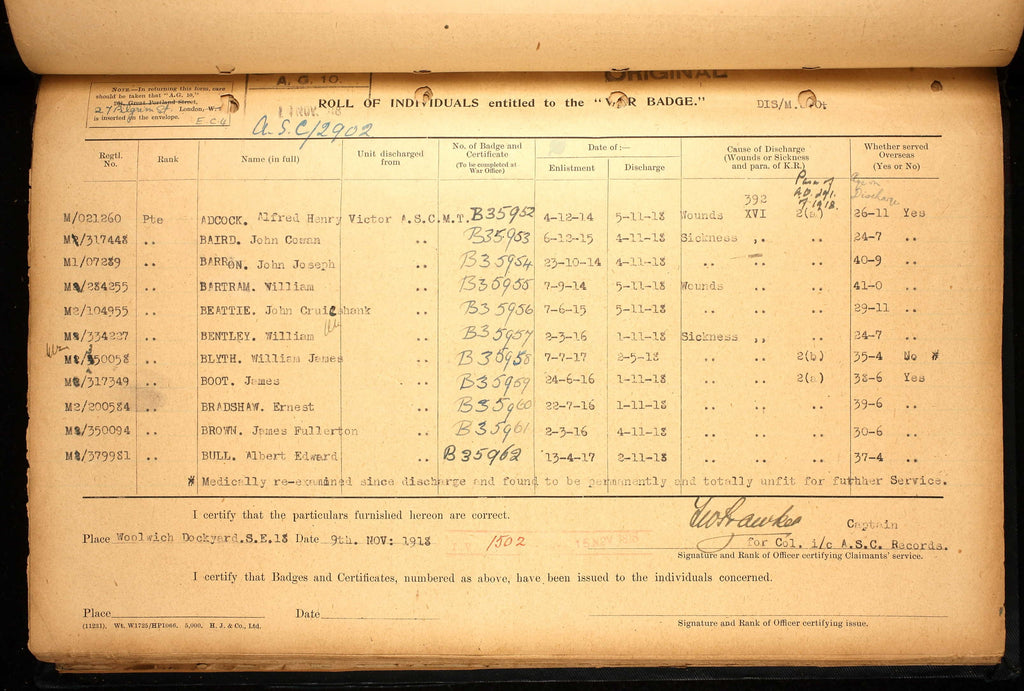 A. G. 10.
ORIGINAL
NOTE.—In returning this form, care
should be taken that "A.G. 10,"
Great Portland Street,
27 Pilgrim St. London, W.
is inserted on the envelope. E-C-4
NOV.
ROLL OF INDIVIDUALS entitled to the "WAR BADGE."
DIS/M.
A.S.C/2902
Regtl. No. Rank Name (in full) Unit discharged from No. of Badge and Certificate (To be completed at War Office) Date of:— Enlistment Discharge Cause of Discharge (Wounds or Sickness and para. of K.R.) Whether served Overseas (Yes or No)
392 Para of A.O. 291. 7.1918. Age on Discharge
M/021260 Pte ADCOCK. Alfred Henry Victor A.S.C.M.T. B35952 4-12-14 5-11-18 Wounds XVI 2(a) 26-11 Yes
M2/317448 .. BAIRD. John Cowan .. B35953 6-12-15 4-11-18 Sickness ,, 24-7 ..
M1/07289 .. BARRON. John Joseph .. B35954 23-10-14 4-11-18 .. .. .. 40-9 ..
M2/284255 .. BARTRAM. William .. B35955 7-9-14 5-11-18 Wounds .. .. 41-0 ..
M2/104955 .. BEATTIE. John Cruickshank .. B35956 7-6-15 5-11-18 .. .. .. 29-11 ..
M2/334227 .. BENTLEY. William .. B35957 2-3-16 1-11-18 Sickness ,, .. 24-7 ..
.. BLYTH. William James .. B35958 7-7-17 2-5-18 .. .. 2(b) 35-4 No #
M2/317349 .. BOOT. James .. B35959 24-6-16 1-11-18 .. .. 2(a) 38-6 Yes
M2/200584 .. BRADSHAW. Ernest .. B35960 22-7-16 1-11-18 .. .. .. 39-6 ..
M2/350094 .. BROWN. James Fullerton .. B35961 2-3-16 4-11-18 .. .. .. 30-6 ..
M2/379981 .. BULL. Albert Edward .. B35962 13-4-17 2-11-18 .. .. .. 37-4 ..
# Medically re-examined since discharge and found to be permanently and totally unfit for furthher Service.
I certify that the particulars furnished hereon are correct.
Captain
Place Woolwich Dockyard.S.E.18 Date 9th. NOV: 1918 1502 15 NOV 1918 for Col. i/c A.S.C. Records.
Signature and Rank of Officer certifying Claimants' service.
I certify that Badges and Certificates, numbered as above, have been issued to the individuals concerned.
Place Date
(11231). Wt. W1725/HP1066. 5,000. H. J. & Co., Ltd.
Signature and Rank of Officer certifying issue.